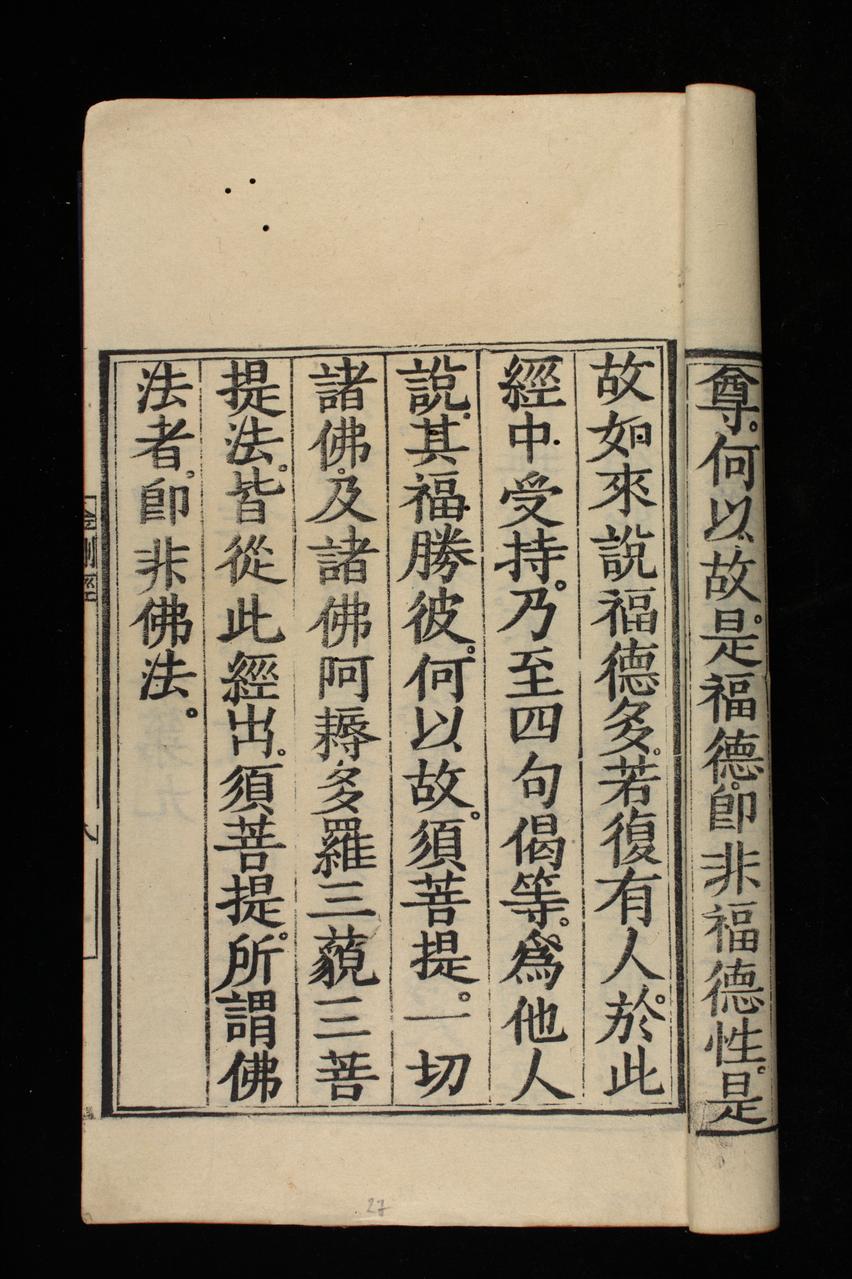 尊。何以故。是福德。卽非福德性。是
故如來說福德多。若復有人。於此
經中。受持。乃至四句偈等。為他人
說。其福勝彼。何以故。須菩提。一切
諸佛。及諸佛阿耨多羅三藐三菩
提法。皆從此經出。須菩提。所謂佛
法者。卽非佛法。
金剛經
八
27